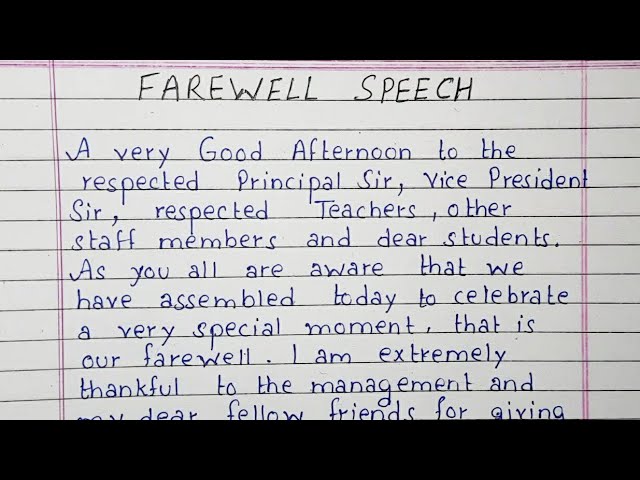 FAREWELL SPEECH
A very Good Afternoon to the
respected Principal Sir, Vice President
Sir, respected Teachers, other
staff members and dear students.
As you all are aware that we
have assembled today to celebrate
a very special moment, that is
our farewell. I am extremely
thankful to the management and
my dear fellow friends for giving